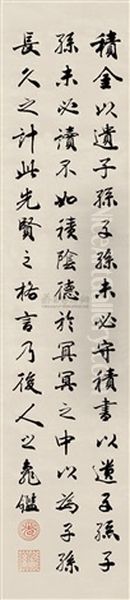 積金以遺子孫子孫未必守積書以遺子孫子
孫未必讀不如積陰德於冥冥之中以為子孫
長久之計此先賢之格言乃後人之龜鑑